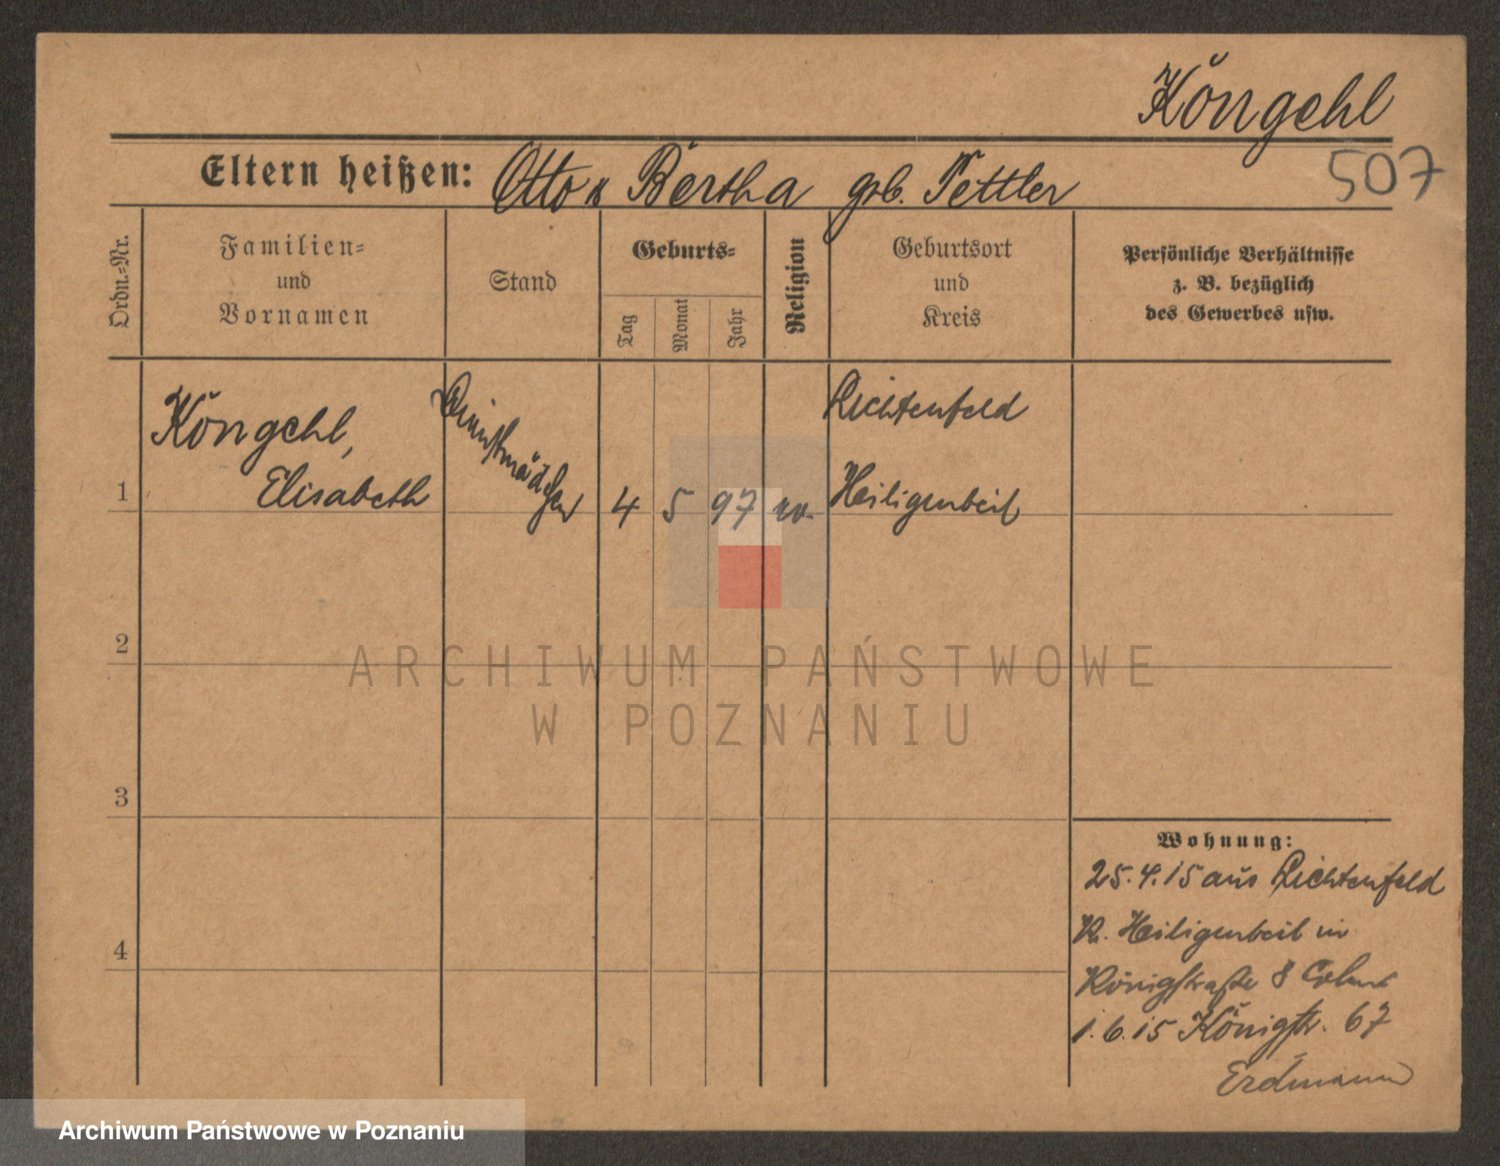 Köngehl
507
Eltern heißen: Otto u Bertha geb. Tettler
Ordn.=Nr.
Familien=
und
Vornamen
Stand
Geburts=
Tag
Monat
Jahr
Religion
Geburtsort
und
Kreis
Persönliche Verhältnisse
z. B. bezüglich
des Gewerbes usw.
1
Köngehl,
Elisabeth
Dienstmädchen
4 5 97 ev.
Lichtenfeld
Heiligenbeil
2
3
4
Wohnung:
25.4.15 aus Lichtenfeld
Kr. Heiligenbeil in
Königstraße 8
1.6.15 Königstr. 67
Erdmann
ARCHIWUM PAŃSTWOWE
W POZNANIU
Archiwum Państwowe w Poznaniu